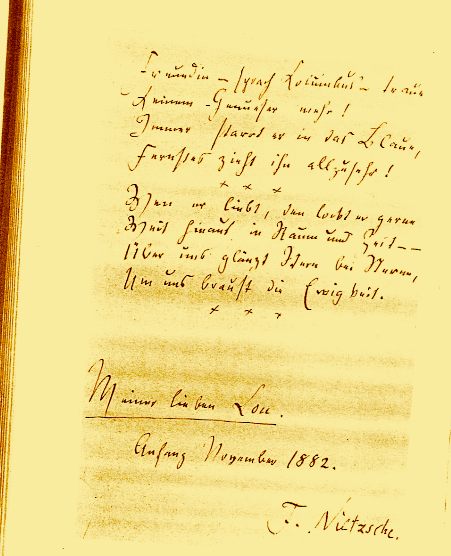 Freundin – sprach Columbus – traue
Keinem Genueser mehr!
Immer starrt er in das Blaue,
Fernstes zieht ihn allzusehr!
× × ×
Wen er liebt, den lockt er gerne
Weit hinaus in Raum und Zeit – –
Über uns glänzt Stern bei Sterne,
Um uns braust die Ewigkeit.
× × ×
Meiner lieben Lou.
Anfang November 1882.
F. Nietzsche.